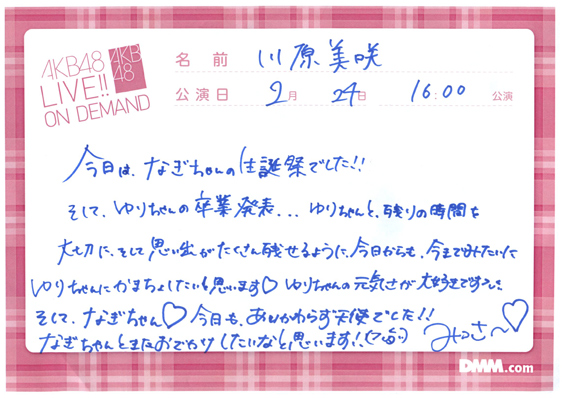 AKB48
LIVE!!
ON DEMAND
AKB
48
名前 川原美咲
公演日 2月 24日 16:00 公演
今日は、なぎちゃんの生誕祭でした!!
そして、ゆりちゃんの卒業発表... ゆりちゃんと、残りの時間を
大切に、そして思い出がたくさん残せるように、今日からも、今までみたいに
ゆりちゃんにかまちょしたいと思います♡ ゆりちゃんの元気さが大好きです
そして、なぎちゃん♡ 今日も、あいかわらず天使でした!!
なぎちゃんとまたおでかけしたいなと思います!
みっさ〜♡
DMM.com